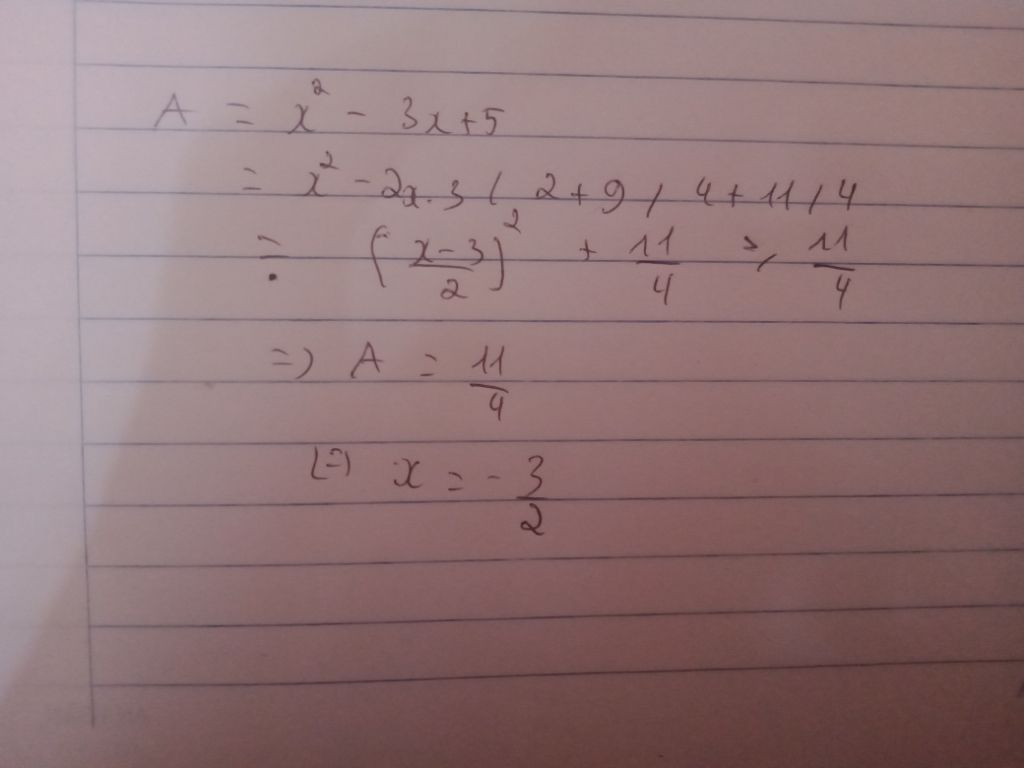 A = x² - 3x+5
= x² - 2x.3 / 2 + 9 / 4 + 11 / 4
= (x-3/2)² + 11/4 ≥ 11/4
=) A = 11/4
(=) x = - 3/2